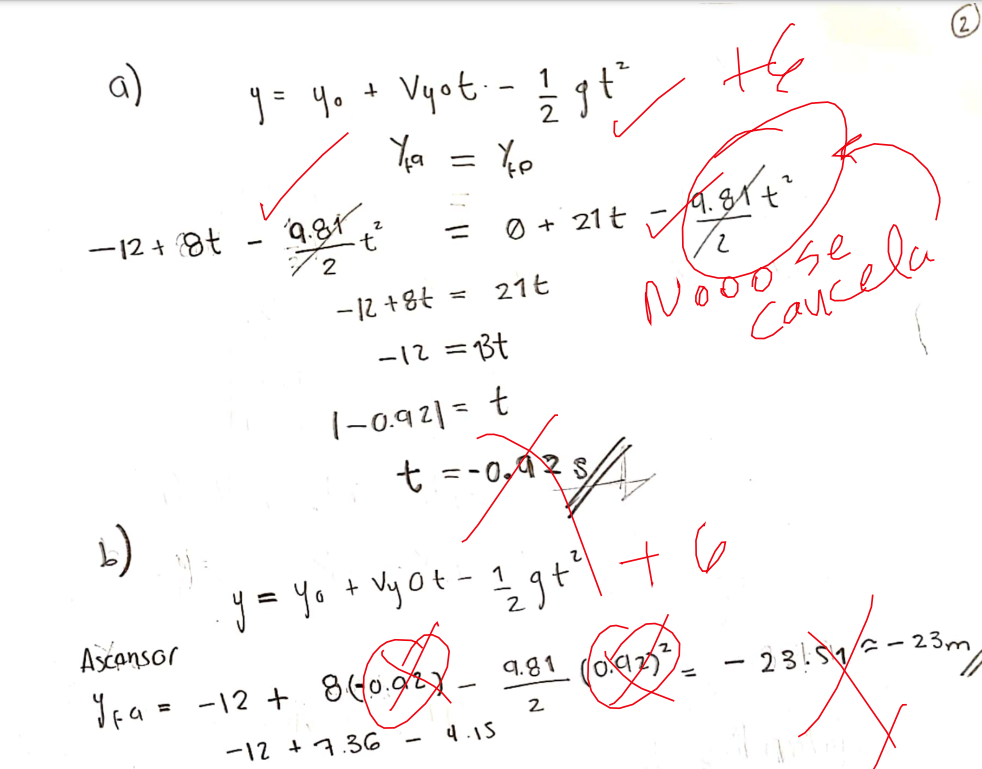 ②
a) y = y₀ + Vy0t - 1/2 gt² +6
Yfa = Yfp
-12 + 8t - 9.81/2 t² = 0 + 21t - 9.81/2 t²
Nooo se cancela
-12 + 8t = 21t
-12 = 13t
|-0.92| = t
t = -0.92 s
b)
y = y₀ + Vy0t - 1/2 gt² + 6
Ascensor
YFa = -12 + 8(-0.92) - 9.81/2 (0.92)² = -23.51 ≈ -23m
-12 + 7.36 - 4.15